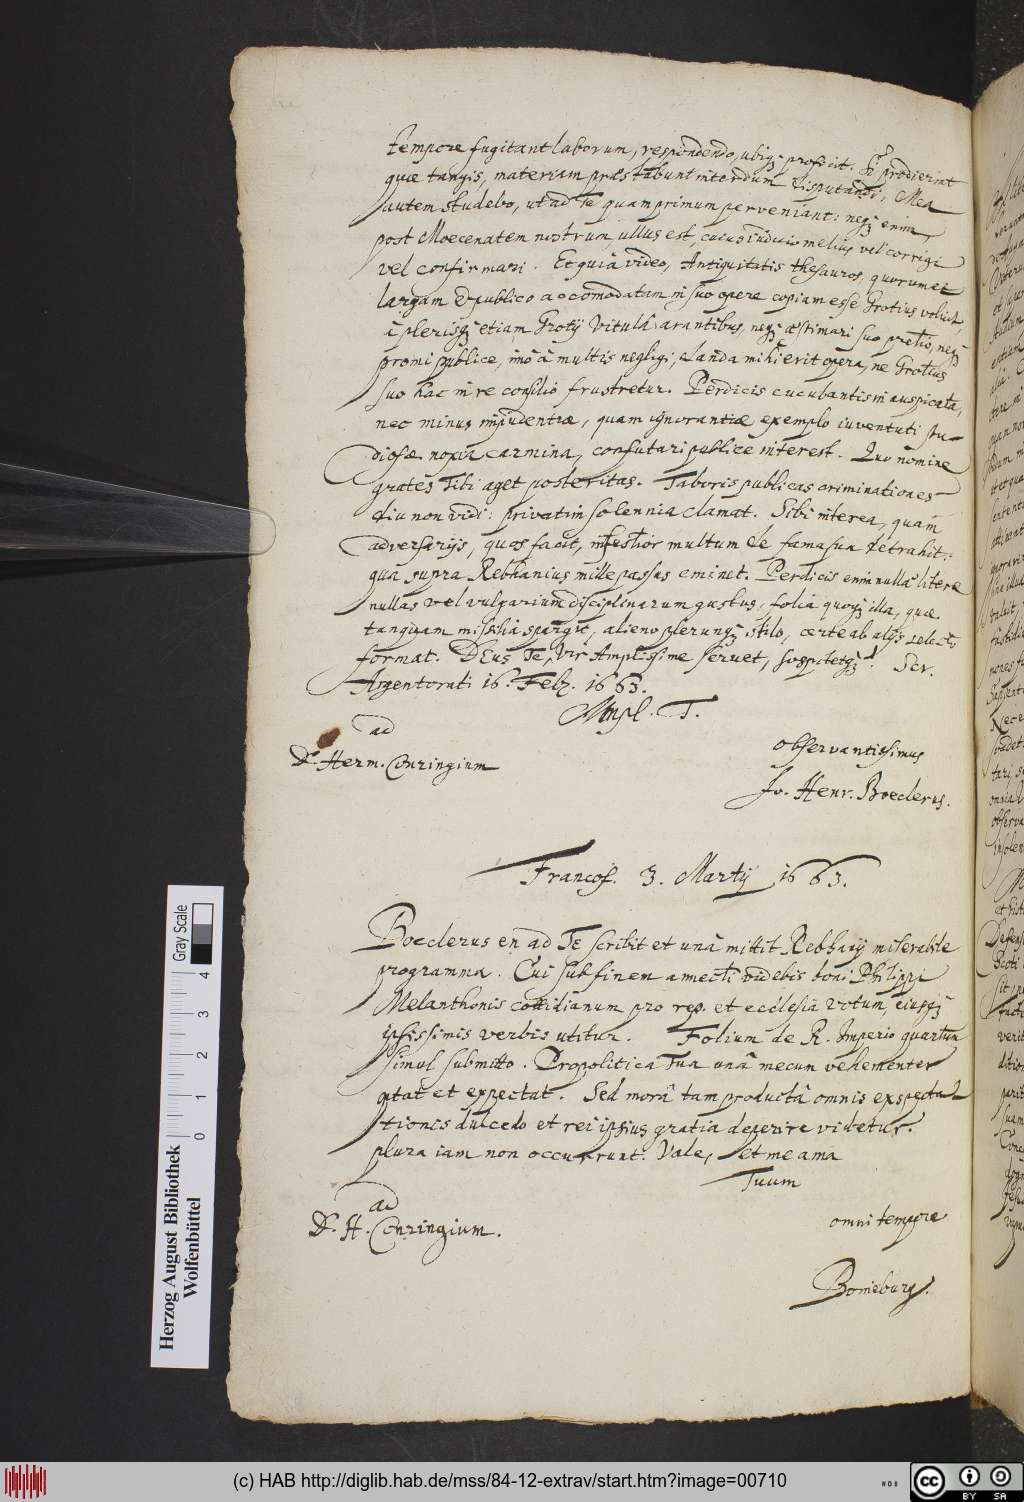 tempore fugitant laborum, respondendo, ubiq; proficit. Si prodierint
quæ tangis, materiam præstabunt interdum disputandi. Mea
autem studebo, ut ad Te quamprimum perveniant: neq; enim,
post Moecenatem nostrum, ullus est, cuius iudicio melius vel corrigi
vel confirmari. Et quia video, Antiquitatis thesauros, quorum et
largam & publico accomodatam in suo opere copiam esse Grotius voluit,
à plerisq; etiam Grotij vitulâ arantibus, neq; æstimari suo pretio, neq;
promi publice, imò à multis negligi, danda mihi erit opera, ne Grotius
suo hac in re consilio frustretur. Perdicis cucubantis inauspicata,
nec minus impudentiæ, quam ignorantiæ exemplo iuventuti stu-
diosæ noxia carmina, confutari publice interest. Quo nomine
grates Tibi aget posteritas. Taboris publicas criminationes
diu non vidi: privatim solennia clamat. Sibi interea, quam
adversarijs, quos facit, infestior multum de fama sua detrahit:
qua supra Rebhanius mille passus eminet. Perdicis enim nullæ literæ
nullus vel vulgarium disciplinarum gustus, folia quoq; illa, quæ
tanquam missilia spargit, alieno plerunq; stilo, certe ab alijs selecto
format. DEus Te, Vir Amplissime servet, sospitetq;. Scr.
Argentorati 16. Feb. 1663.
Ampl. T.
ad
Dn. Herm. Conringium
observantissimus
Jo. Henr. Boeclerus.
Francof. 3. Martij 1663.
Boeclerus en ad Te scribit et unâ mittit Rebhanij miserabile
programma. Cui sub finem annecti videbis boni Philippi
Melanthonis cottidianum pro rep. et ecclesia votum, eiusq;
ipsissimis verbis utitur. Folium de R. Imperio quartum
simul submitto. Propolitica Tua unâ mecum vehementer
optat et expectat. Sed morâ tam productâ omnis exspecta-
tionis dulcedo et rei ipsius gratia deperire videtur.
plura iam non occurrunt. Vale, et me ama
Tuum
ad
Dn. H. Conringium.
omni tempore
Boineburg.
Herzog August Bibliothek
Wolfenbüttel
Gray Scale
0 1 2 3 4
(c) HAB http://diglib.hab.de/mss/84-12-extrav/start.htm?image=00710
cc BY SA